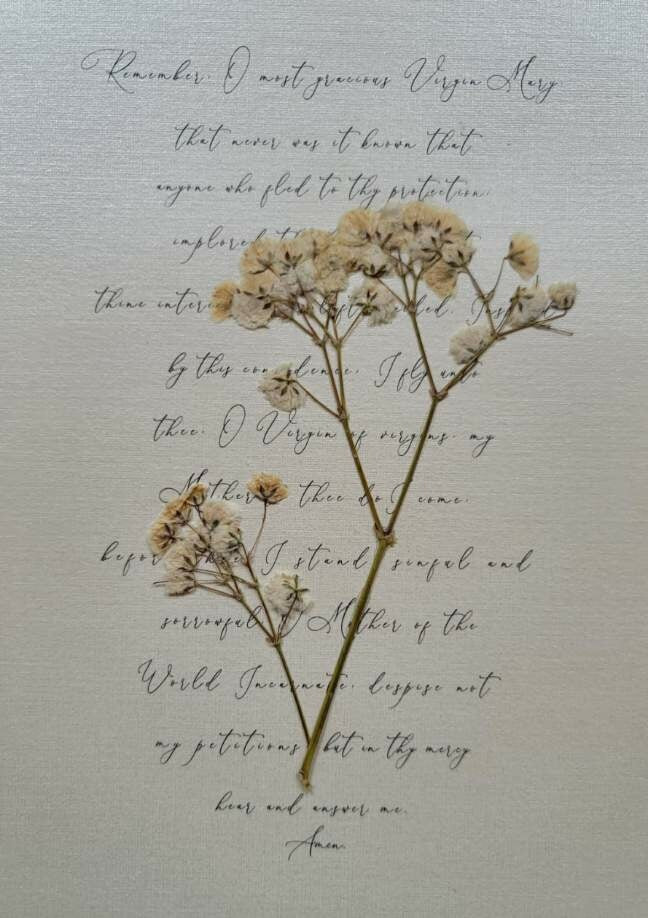 Remember, O most gracious Virgin Mary
that never was it known that
anyone who fled to thy protection,
implored
thine left
by this I fly unto
thee, O Virgin of virgins, my
Mother thee do I come,
I stand sinful and
sorrowful O Mother of the
World Incarnate, despise not
my petitions but in thy mercy
hear and answer me.
Amen.